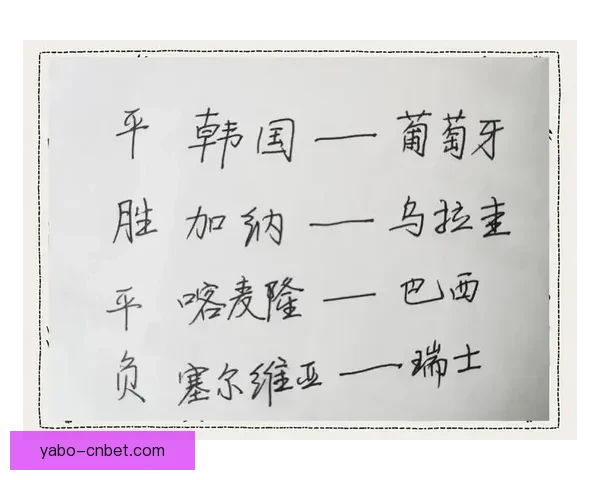 平 韩国 — 葡萄牙
胜 加纳 — 乌拉圭
平 喀麦隆 — 巴西
负 塞尔维亚 — 瑞士
yabo-cnbet.com